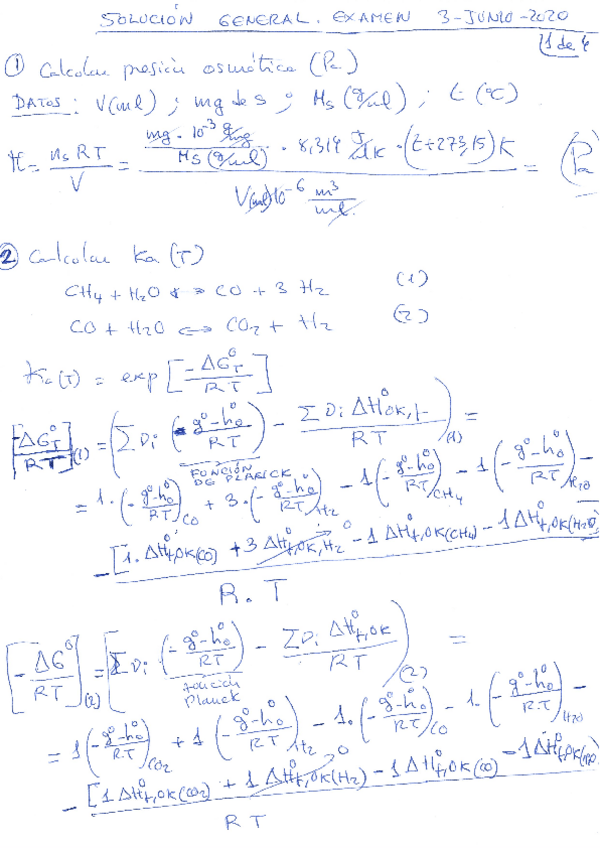 SOLUCIÓN GENERAL. EXAMEN 3-JUNIO-2020
1 de 4
① Calcular presión osmótica (Pa)
DATOS: V(ml) ; mg de s ; Ms (g/ml) ; t (ºC)
π = ns RT / V = (mg · 10⁻³ g/mg / Ms (g/ml) · 8,314 J/ · (t+273,15) K) / (V(ml) 10⁻⁶ m³/ml) = (Pa)
② Calcular Ka (T)
CH₄ + H₂O ⇔ CO + 3 H₂ (1)
CO + H₂O ⇔ CO₂ + H₂ (2)
Ka(T) = exp [-ΔG°T / RT]
[-ΔG°T / RT](1) = (Σ νi (-g°-h°₀ / RT) - Σ νi ΔH°0K,f / RT)(1) =
FUNCIÓN DE PLANCK
= 1·(-g°-h°₀ / RT)CO + 3·(-g°-h°₀ / RT)H₂ - 1(-g°-h°₀ / RT)CH₄ - 1(-g°-h°₀ / RT)H₂O -
- [1·ΔH°f,0K(CO) + 3 ΔH°f,0K,H₂ →0 - 1ΔH°f,0K(CH₄) - 1ΔH°f,0K(H₂O)]
R. T
[-ΔG° / RT](2) = [Σ νi (-g°-h°₀ / RT) - Σ νi ΔH°f,0K / RT](2) =
función Planck
= 1(-g°-h°₀ / RT)CO₂ + 1(-g°-h°₀ / RT)H₂ - 1·(-g°-h°₀ / RT)CO - 1·(-g°-h°₀ / RT)H₂O -
- [1 ΔH°f,0K(CO₂) + 1ΔH°f,0K(H₂) →0 - 1ΔH°f,0K(CO) - 1ΔH°f,0K(H₂O)]
RT